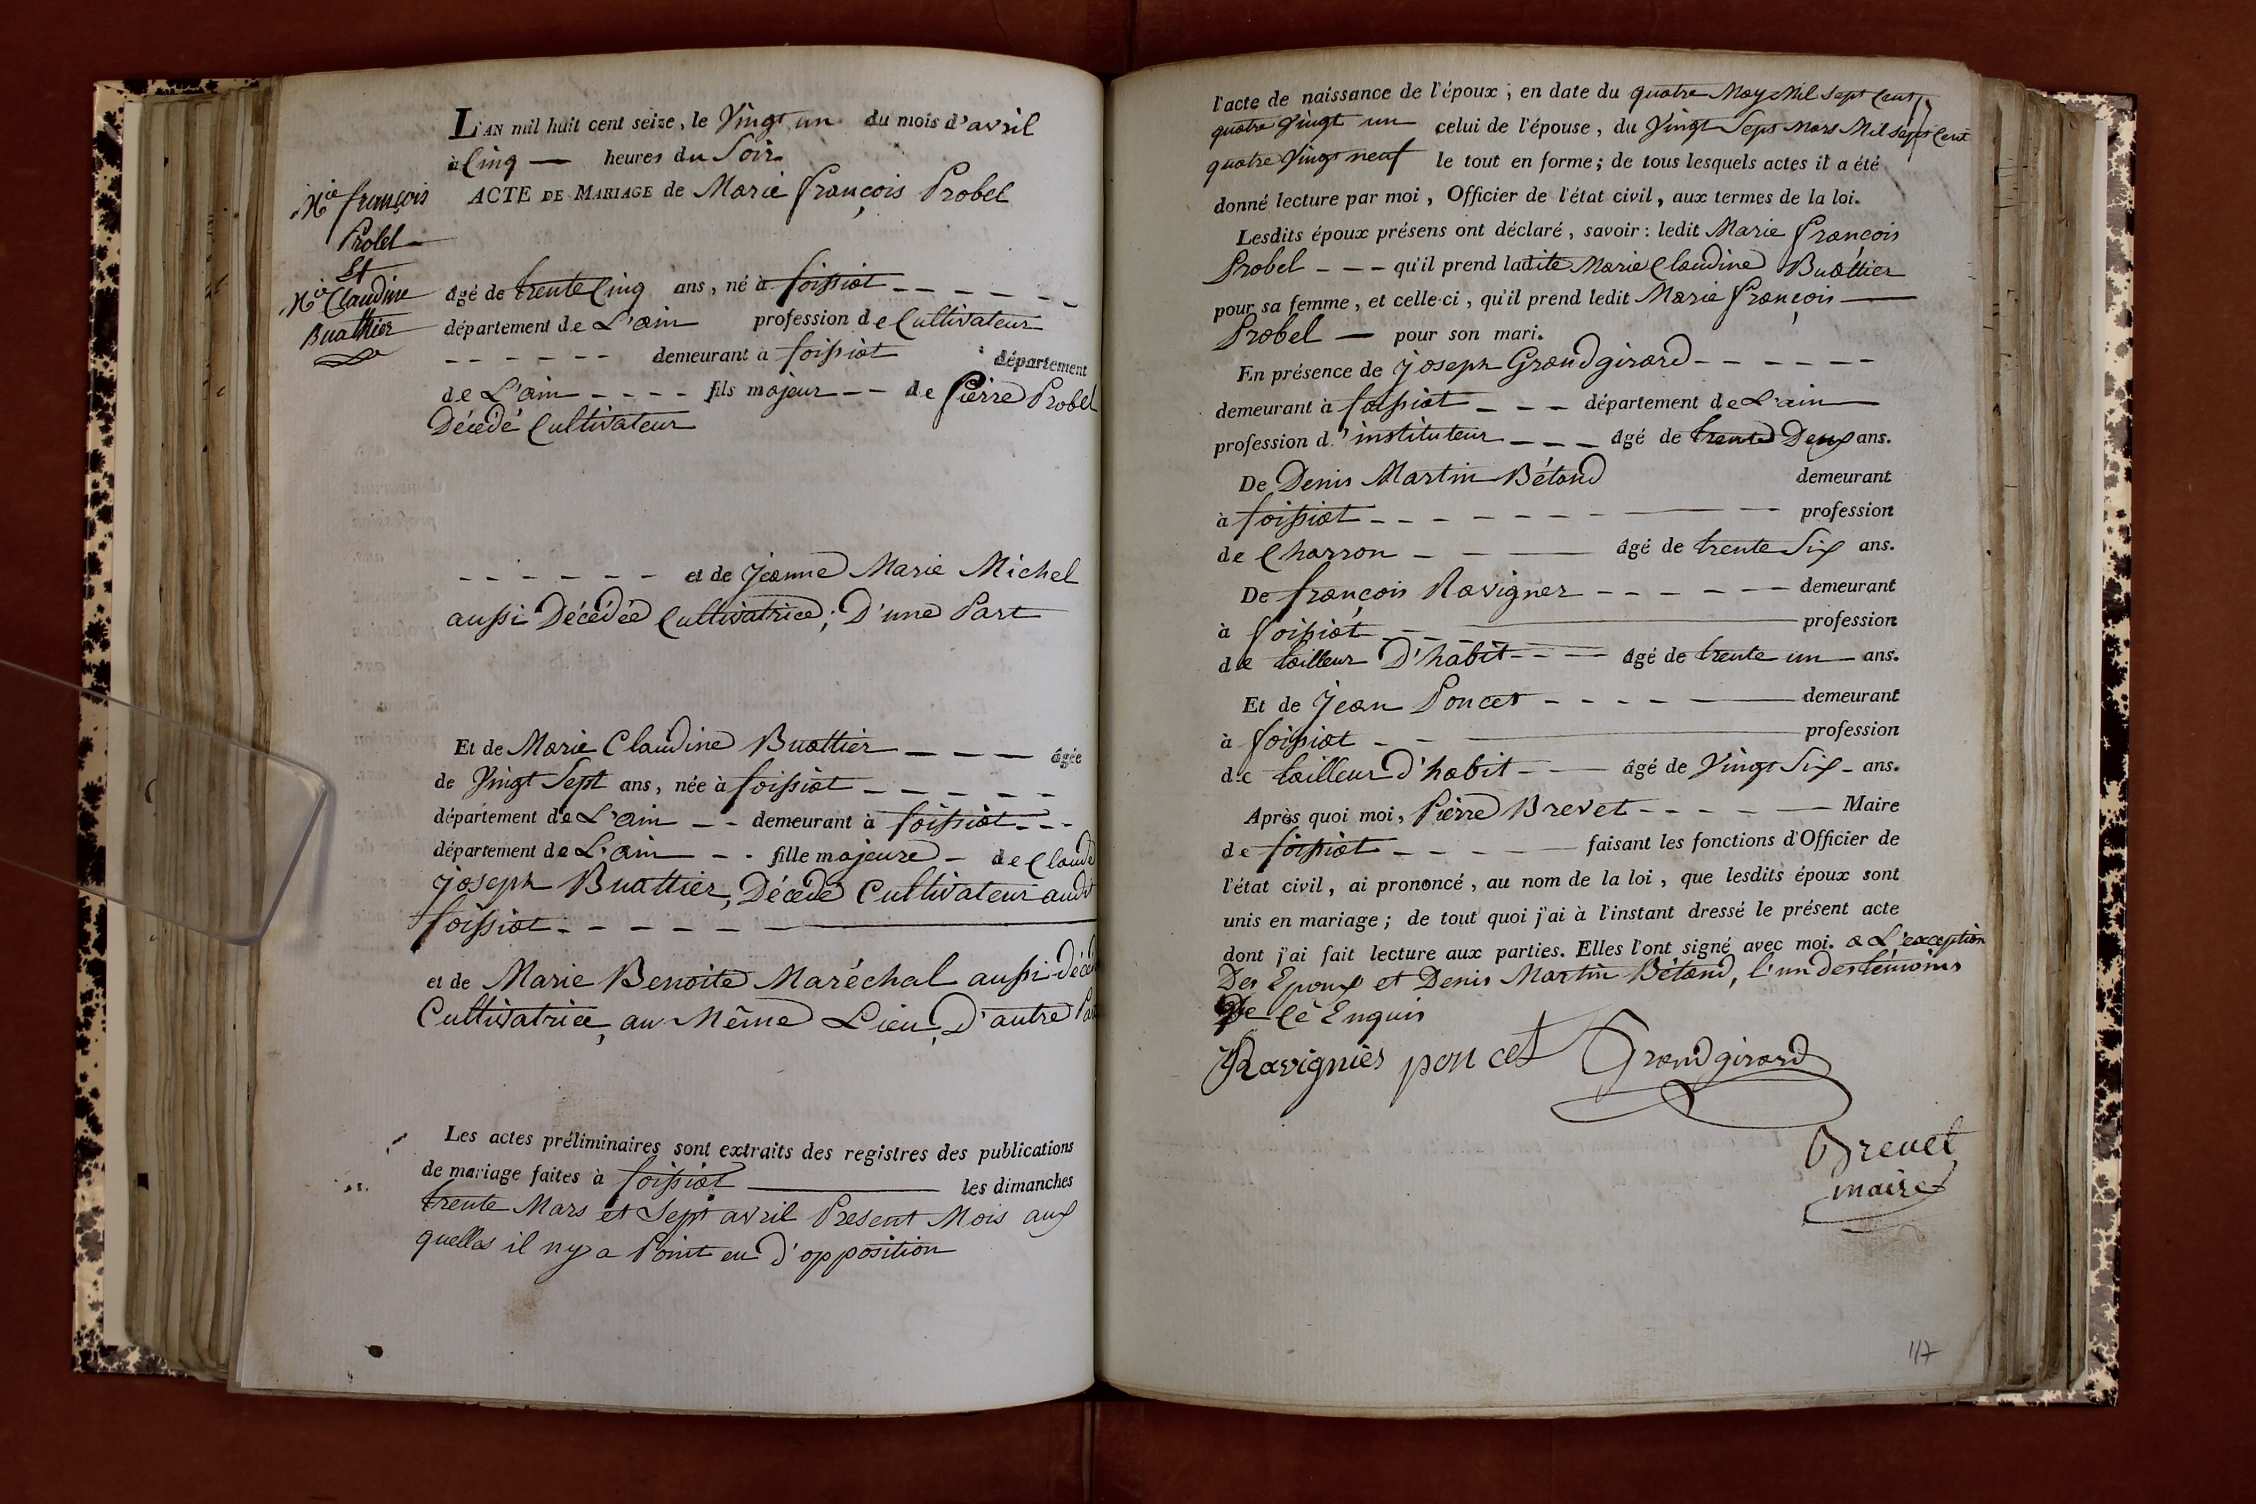 L'AN mil huit cent seize, le Vingt un du mois d'avril
à Cinq — heures du Soir
ACTE DE MARIAGE de Marie françois Probel
Mie françois
Probel
Et
Mie Claudine
Buathier
âgé de trente Cinq ans, né à foissiat
département de L'ain profession de Cultivateur
demeurant à foissiat département
de L'ain fils majeur de Pierre Probel
Décédé Cultivateur
et de Jeanne Marie Michel
aussi Décédée Cultivatrice; D'une Part
Et de Marie Claudine Buattier âgée
de Vingt Sept ans, née à foissiat
département de L'ain demeurant à foissiat
département de L'ain fille majeure de Claude
Joseph Buattier, Décédé Cultivateur audit
foissiat
et de Marie Benoite Maréchal aussi
Cultivatrice, au Même Lieu, D'autre
Les actes préliminaires sont extraits des registres des publications
de mariage faites à foissiat les dimanches
trente Mars et Sept avril Present Mois aux
quelles il ny a Point eu d'opposition
l'acte de naissance de l'époux, en date du quatre May Mil Sept Cent
quatre Vingt un celui de l'épouse, du Vingt Sept Mars Mil Sept Cent
quatre Vingt neuf le tout en forme; de tous lesquels actes il a été
donné lecture par moi, Officier de l'état civil, aux termes de la loi.
Lesdits époux présens ont déclaré, savoir: ledit Marie françois
Probel — qu'il prend ladite Marie Claudine Buattier
pour sa femme, et celle-ci, qu'il prend ledit Marie françois
Probel — pour son mari.
En présence de Joseph Grandgirard
demeurant à foissiat département de L'ain
profession d'instituteur âgé de trente Deux ans.
De Denis Martin Bétand demeurant
à foissiat profession
de Charron âgé de trente Six ans.
De françois Ravignez demeurant
à foissiat profession
de tailleur D'habit âgé de trente un ans.
Et de Jean Poncet demeurant
à foissiat profession
de tailleur d'habit âgé de Vingt Six ans.
Après quoi moi, Pierre Brevet Maire
de foissiat faisant les fonctions d'Officier de
l'état civil, ai prononcé, au nom de la loi, que lesdits époux sont
unis en mariage; de tout quoi j'ai à l'instant dressé le présent acte
dont j'ai fait lecture aux parties. Elles l'ont signé avec moi. a L'exception
Des Epoux et Denis Martin Bétand, l'un des témoins
De Ce Enquis
Ravigniés poncet Grandgirard
Brevet
maire
117